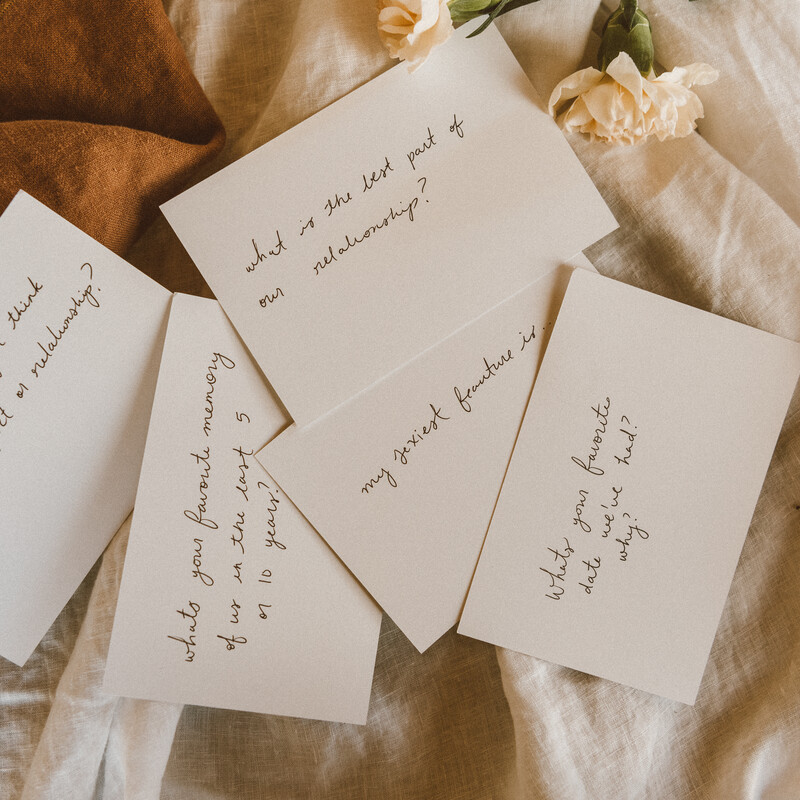 what is the best part of
our relationship?
think
rt or relationship?
whats your favorite memory
of us in the last 5
or 10 years?
my sexiest feauture is...
Whats your favorite
date we've had?
why?